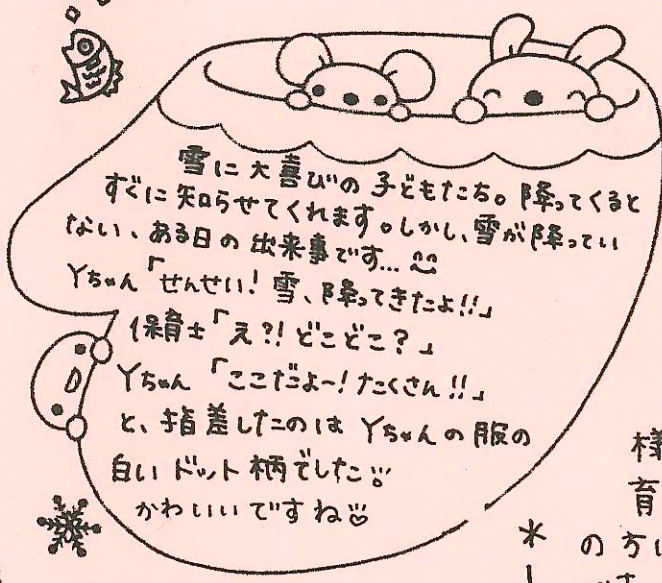 雪に大喜びの子どもたち。降ってくると
すぐに知らせてくれます。しかし、雪が降ってい
ない、ある日の出来事です...
Yちゃん「せんせい!雪、降ってきたよ!!」
保育士「え?!どこどこ?」
Yちゃん「ここだよ~!たくさん!!」
と、指差したのは Yちゃんの服の
白いドット柄でした
かわいいですね
様
育
の方